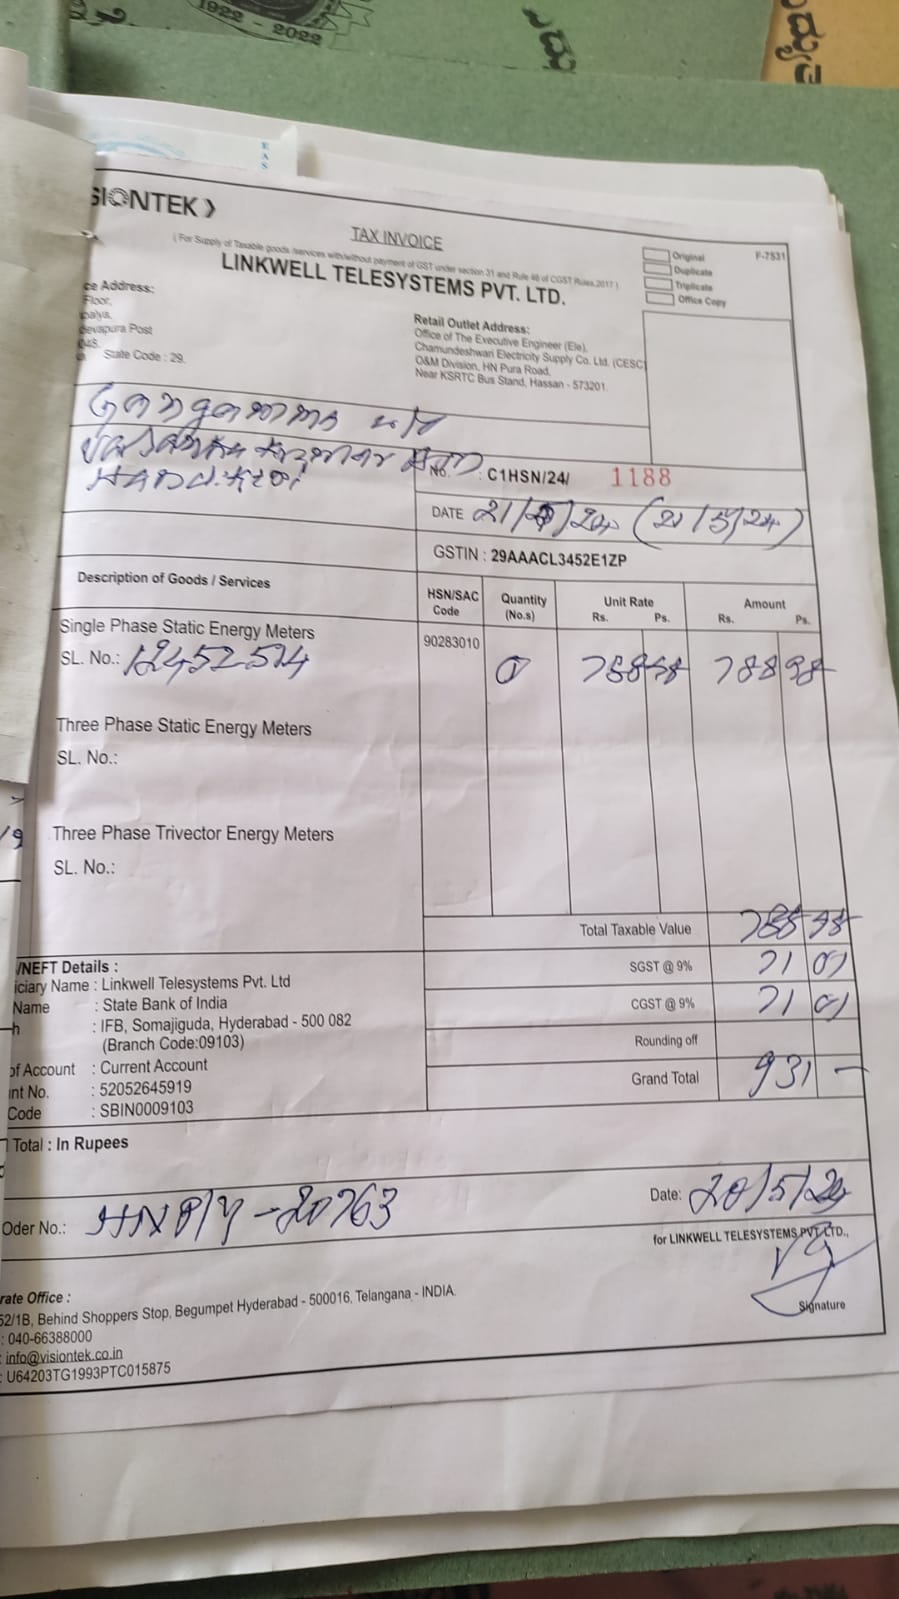 1922 - 2022
SIONTEK
TAX INVOICE
( For Supply of Taxable goods /services with/without payment of GST under section 31 and Rule 46 of CGST Rules,2017 )
LINKWELL TELESYSTEMS PVT. LTD.
Original
Duplicate
Triplicate
Office Copy
F-7531
ce Address:
Floor,
palya,
devapura Post
048.
State Code : 29.
Retail Outlet Address:
Office of The Executive Engineer (Ele),
Chamundeshwari Electricity Supply Co. Ltd. (CESC)
O&M Division, HN Pura Road,
Near KSRTC Bus Stand, Hassan - 573201.
No. : C1HSN/24/ 1188
DATE 21/5/24 (21/5/24)
GSTIN : 29AAACL3452E1ZP
Description of Goods / Services
HSN/SAC Code
Quantity (No.s)
Unit Rate Rs. Ps.
Amount Rs. Ps.
Single Phase Static Energy Meters
90283010
SL. No.: 12452514
788 98
Three Phase Static Energy Meters
SL. No.:
Three Phase Trivector Energy Meters
SL. No.:
Total Taxable Value 788 98
SGST @ 9% 71 01
CGST @ 9% 71 01
Rounding off
Grand Total 931 —
/NEFT Details :
iciary Name : Linkwell Telesystems Pvt. Ltd
Name : State Bank of India
h : IFB, Somajiguda, Hyderabad - 500 082
(Branch Code:09103)
of Account : Current Account
nt No. : 52052645919
Code : SBIN0009103
Total : In Rupees
Oder No.: HNP/Y-20763
Date: 20/5/24
for LINKWELL TELESYSTEMS PVT. LTD.,
Signature
rate Office :
52/1B, Behind Shoppers Stop, Begumpet Hyderabad - 500016, Telangana - INDIA.
: 040-66388000
: info@visiontek.co.in
: U64203TG1993PTC015875